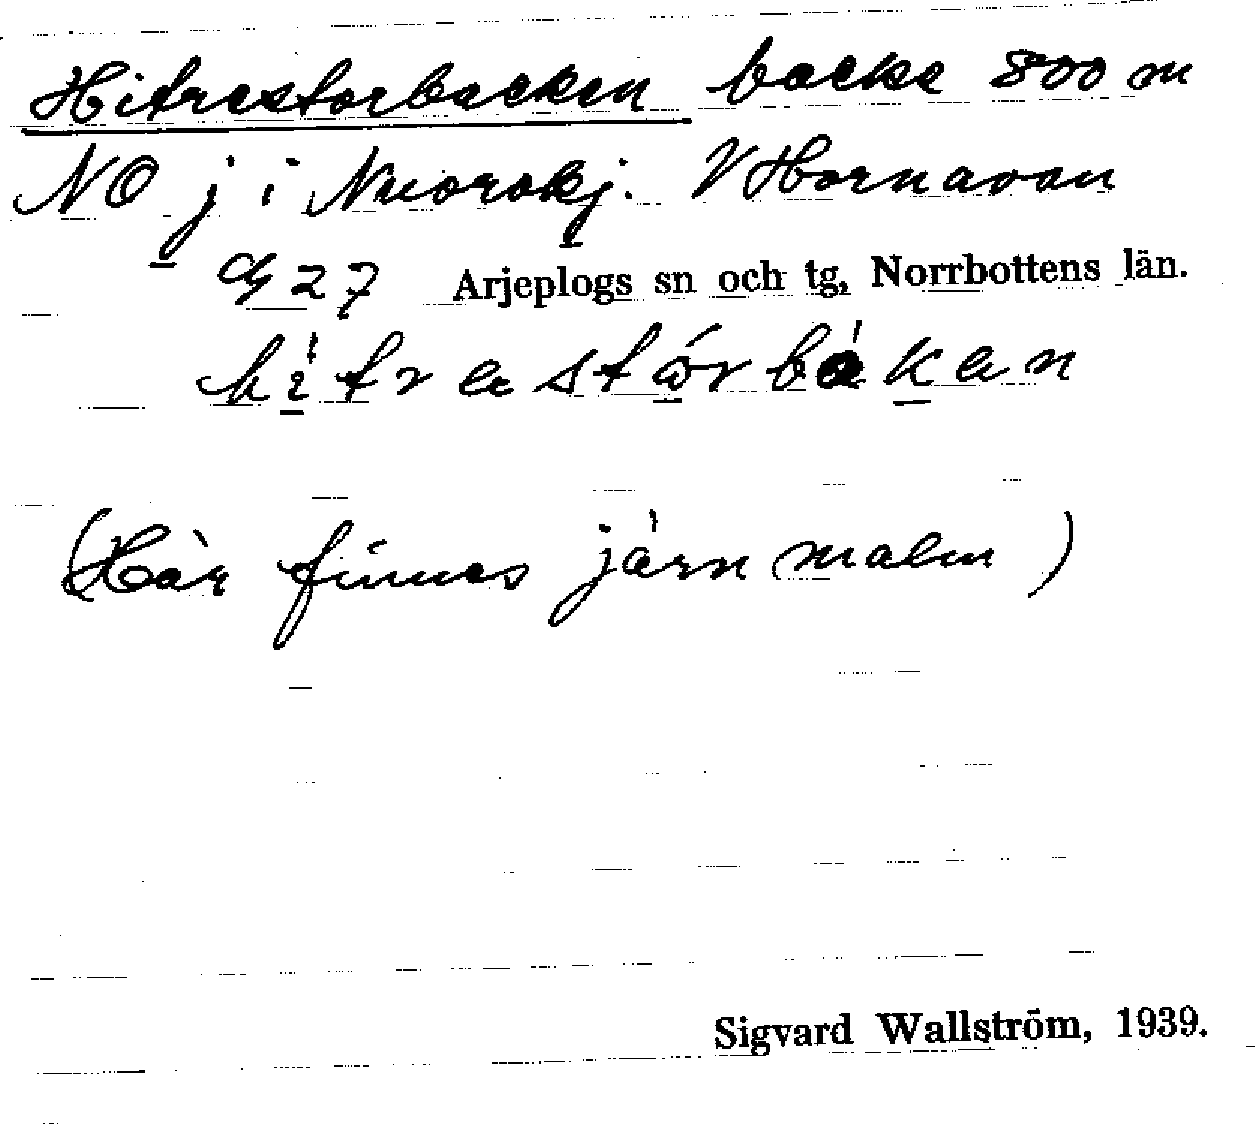 Hitrestorbacken backe 800 m
NO j i Nuorokj. V Hornavan
G 27 Arjeplogs sn och tg, Norrbottens län.
hi̠tresto̠rbák̠en
(Här finnes järnmalm)
Sigvard Wallström, 1939.